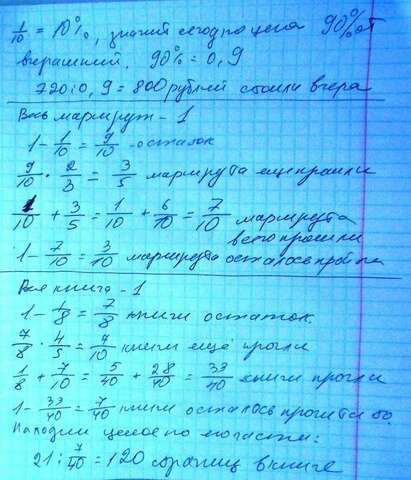 1/10 = 10%, значит сегодня цена 90% от
вчерашней. 90% = 0,9
720 : 0,9 = 800 рублей стоили вчера
Весь маршрут - 1
1 - 1/10 = 9/10 - остаток
9/10 · 2/3 = 3/5 маршрута еще прошли
1/10 + 3/5 = 1/10 + 6/10 = 7/10 маршрута
всего прошли
1 - 7/10 = 3/10 маршрута осталось пройти
Вся книга - 1
1 - 1/8 = 7/8 книги остаток.
7/8 · 4/5 = 7/10 книги ещё прочли
1/8 + 7/10 = 5/40 + 28/40 = 33/40 книги прочли
1 - 33/40 = 7/40 книги осталось прочитать
Находим целое по его части:
21 : 7/40 = 120 страниц в книге